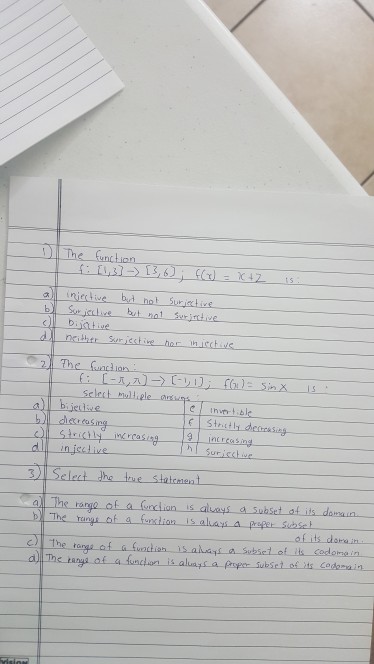 1) The function
f: [1,3] → [3,6); f(x) = x+2 is:
a) injective but not surjective
b) Surjective but not surjective
c) bijective
d) neither surjective nor injective
2) The function:
f: [-π, π] → [-1,1]; f(x) = sin x is:
Select multiple answers
a) bijective e invertible
b) decreasing f Strictly decreasing
c) Strictly increasing g increasing
d injective h surjective
3) Select the true statement
a) The range of a function is always a subset of its domain.
b) The range of a function is always a proper subset
of its domain.
c) The range of a function is always a subset of its codomain
d) The range of a function is always a proper subset of its codomain